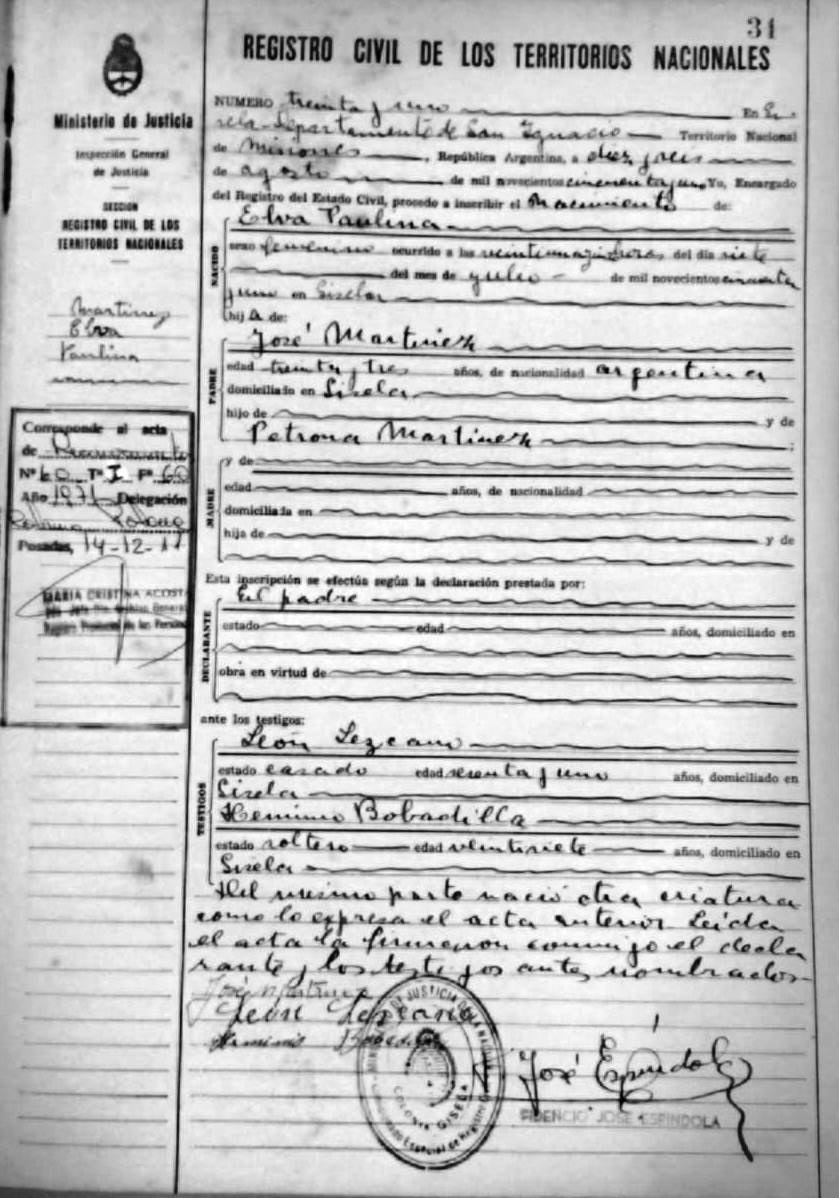 31
REGISTRO CIVIL DE LOS TERRITORIOS NACIONALES
Ministerio de Justicia
Inspección General
de Justicia
SECCION
REGISTRO CIVIL DE LOS
TERRITORIOS NACIONALES
Martinez
Elva
Paulina
Corresponde al acta
de
Nº 60 Tº I Fº 60
Año 1971 Delegación
Posadas, 14-12-
MARIA CRISTINA ACOSTA
NUMERO treinta y uno En Gi-
sela-Departamento de San Ignacio Territorio Nacional
de Misiones, República Argentina, a diez y seis
de agosto de mil novecientos cincuenta y uno Yo, Encargado
del Registro del Estado Civil, procedo a inscribir el Nacimiento de:
NACIDO
Elva Paulina
sexo femenino ocurrido a las horas del día siete
del mes de julio de mil novecientos cincuenta
y uno en Gisela
hij a de:
PADRE
José Martinez
edad treinta y tres años, de nacionalidad argentina
domiciliado en Gisela
hijo de y de
Petrona Martinez ;
MADRE
y de
edad años, de nacionalidad
domiciliada en
hija de y de
Esta inscripción se efectúa según la declaración prestada por:
DECLARANTE
El padre
estado edad años, domiciliado en
obra en virtud de
ante los testigos:
TESTIGOS
León Lezcano
estado casado edad sesenta y uno años, domiciliado en
Gisela
Herminio Bobadilla
estado soltero edad veintisiete años, domiciliado en
Gisela
Del mismo parto nació otra criatura
como lo expresa el acta anterior Leida
el acta la firmaron conmigo el decla
rante y los testigos antes nombrados
José Martinez
León Lezcano
Herminio Bobadilla
COLONIA GISELA
José Espíndola
FIDENCIO JOSE ESPINDOLA